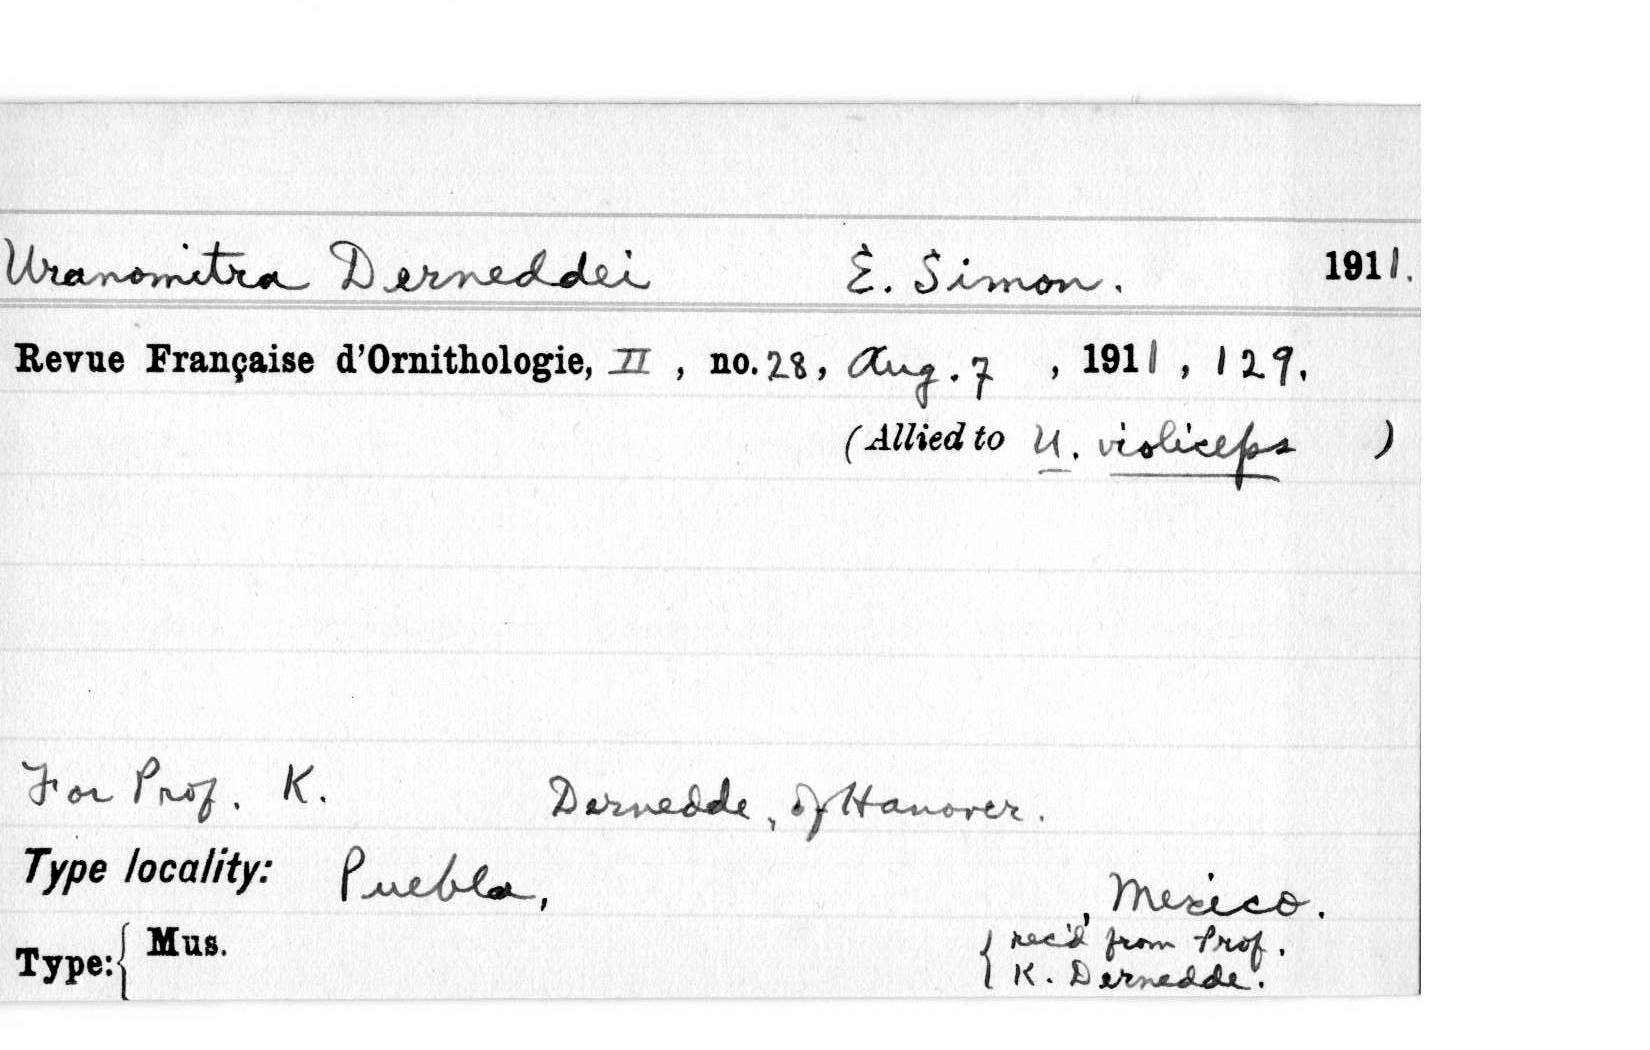 Uranomitra Derneddei E. Simon. 1911.
Revue Française d'Ornithologie, II, no. 28, Aug. 7, 1911, 129.
(Allied to U. violiceps)
For Prof. K. Dernedde, of Hanover.
Type locality: Puebla, , Mexico.
Type: { Mus. { rec'd from Prof.
K. Dernedde.